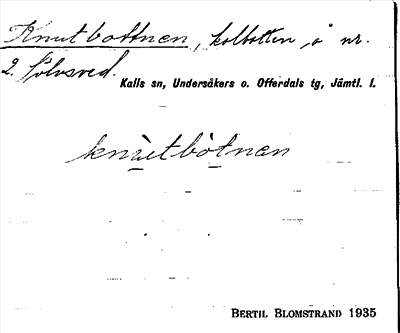 Knutbottnen, kolbotten å nr.
2 Sölvsved.
Kalls sn, Undersåkers o. Offerdals tg, Jämtl. l.
knùtbòtnen
BERTIL BLOMSTRAND 1935